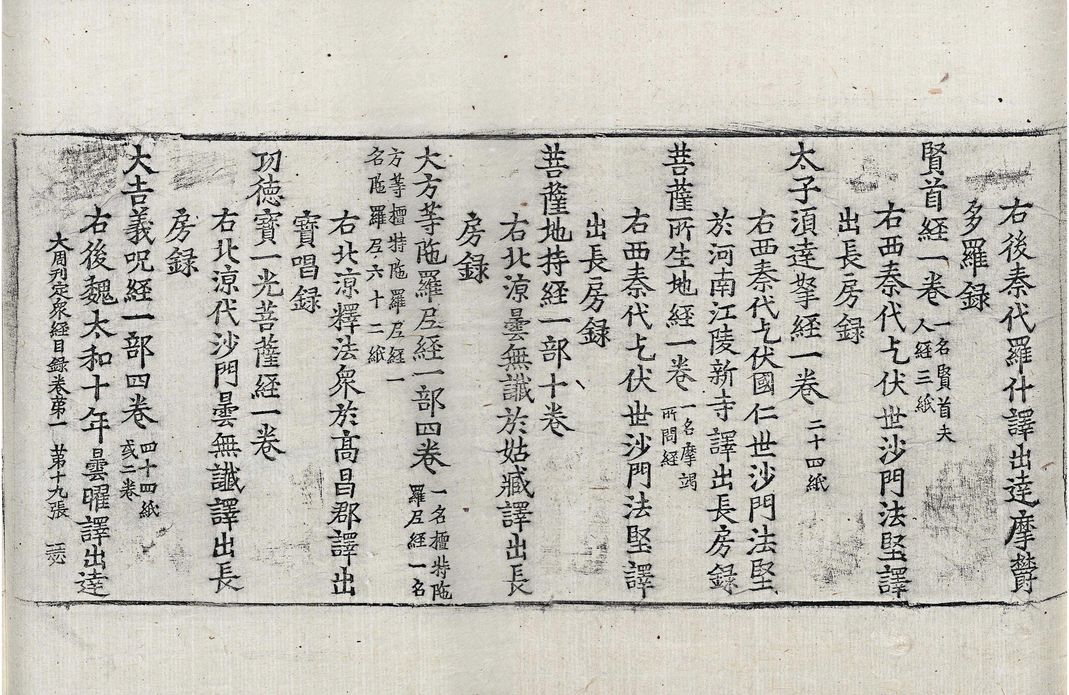 右後秦代羅什譯出達摩欝
多羅録
賢首経一卷 一名賢首夫人経三紙
右西秦代乞伏世沙門法堅譯
出長房録
太子湏達拏経一卷 二十四紙
右西秦代乞伏國仁世沙門法堅
於河南江陵新寺譯出長房録
菩薩所生地経一卷 一名摩竭所問経
右西秦代乞伏世沙門法堅譯
出長房録
菩薩地持経一部十卷
右北涼曇無讖於姑臧譯出長
房録
大方等陁羅尼経一部四卷 一名檀特陁羅尼経一名
方等檀特陁羅尼経一名陁羅尼六十二紙
右北涼釋法衆於髙昌郡譯出
寳唱録
功德寳一光菩薩経一卷
右北涼代沙門曇無讖譯出長
房録
大吉義呪経一部四卷 四十四紙或二卷
右後魏太和十年曇曜譯出達
大周刊定衆経目録卷第一 第十九張